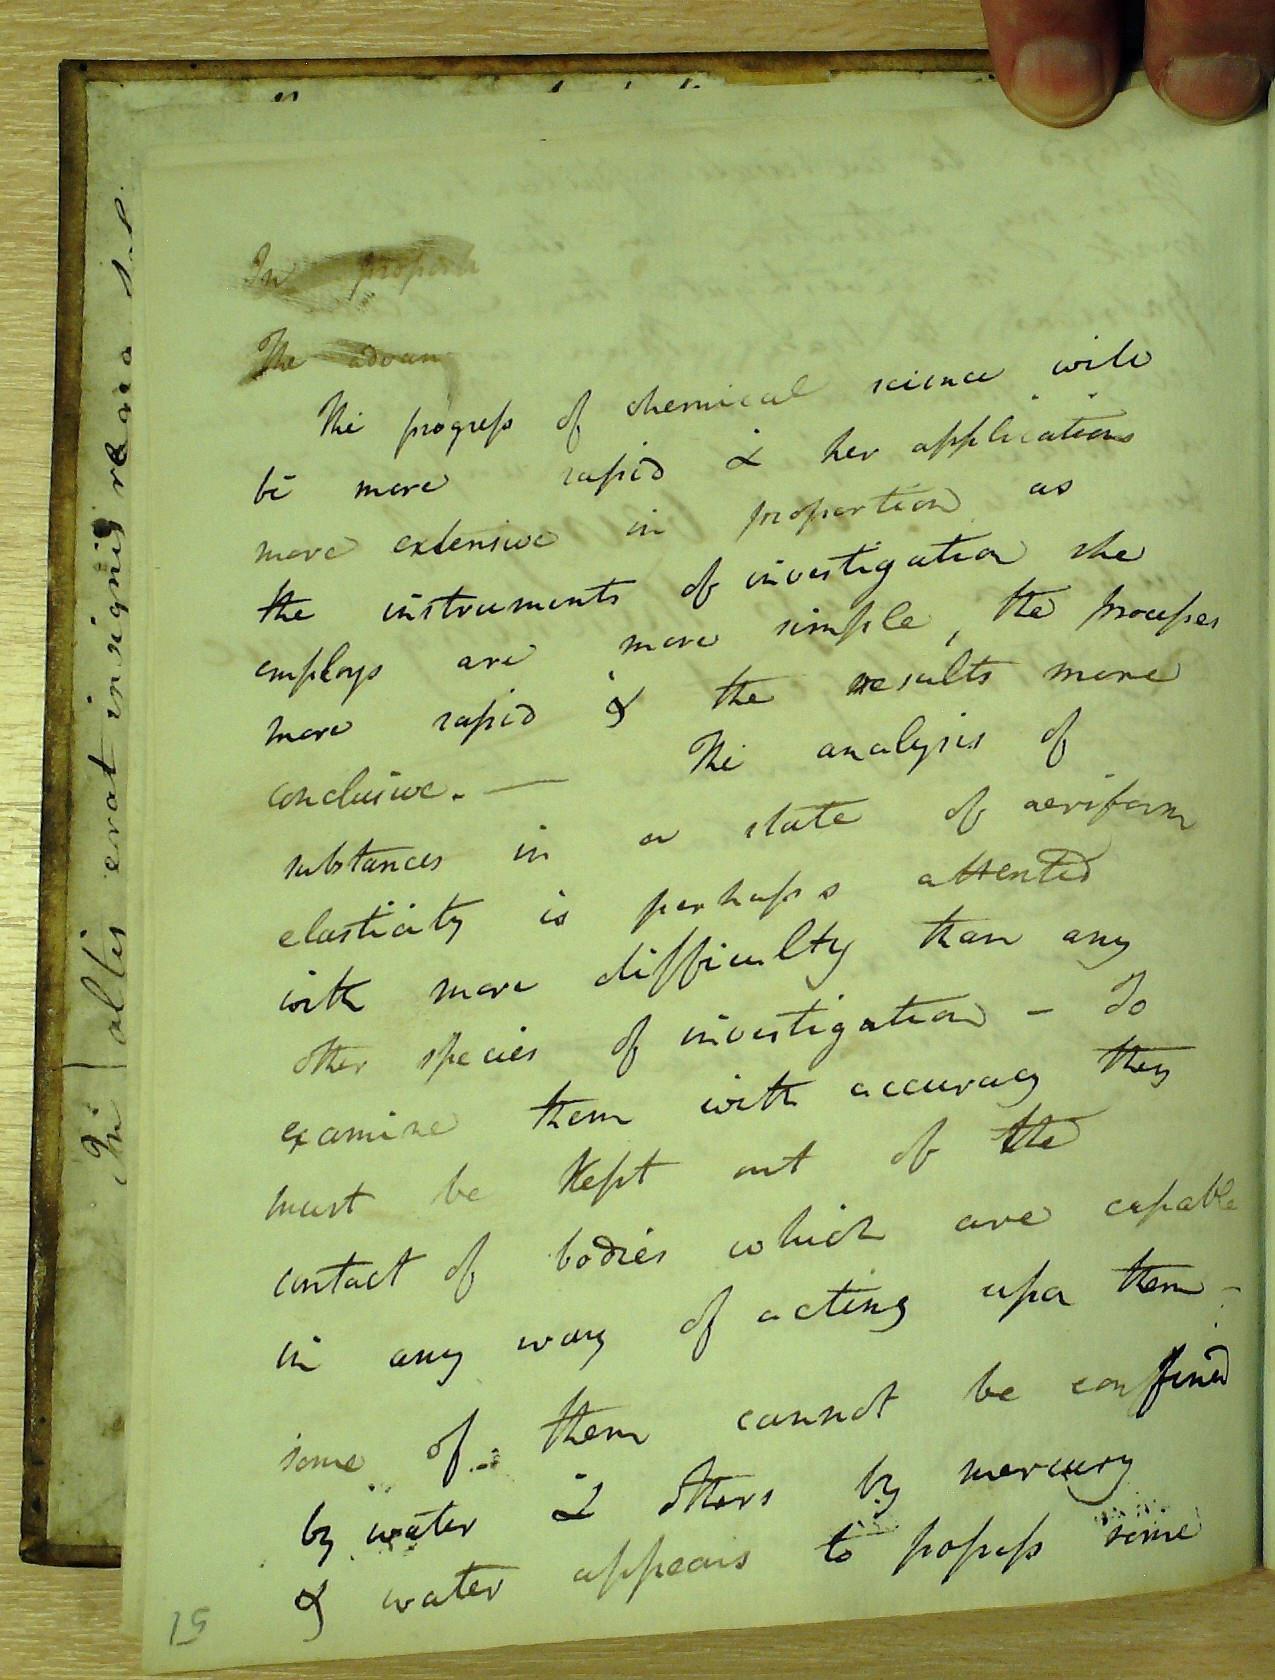 In proporti
The advan
The progress of chemical science will
be more rapid & her applications
more extensive in proportion as
the instruments of investigation she
employs are more simple, the processes
more rapid & the results more
conclusive. — The analysis of
substances in a state of aeriform
elasticity is perhaps attented
with more difficulty than any
other species of investigation – To
examine them with accuracy they
must be kept out of the
contact of bodies which are capable
in any way of acting upon them –
some of them cannot be confined
by water & others by mercury
& water appears to possess some
15
In altis erat insignis rebus